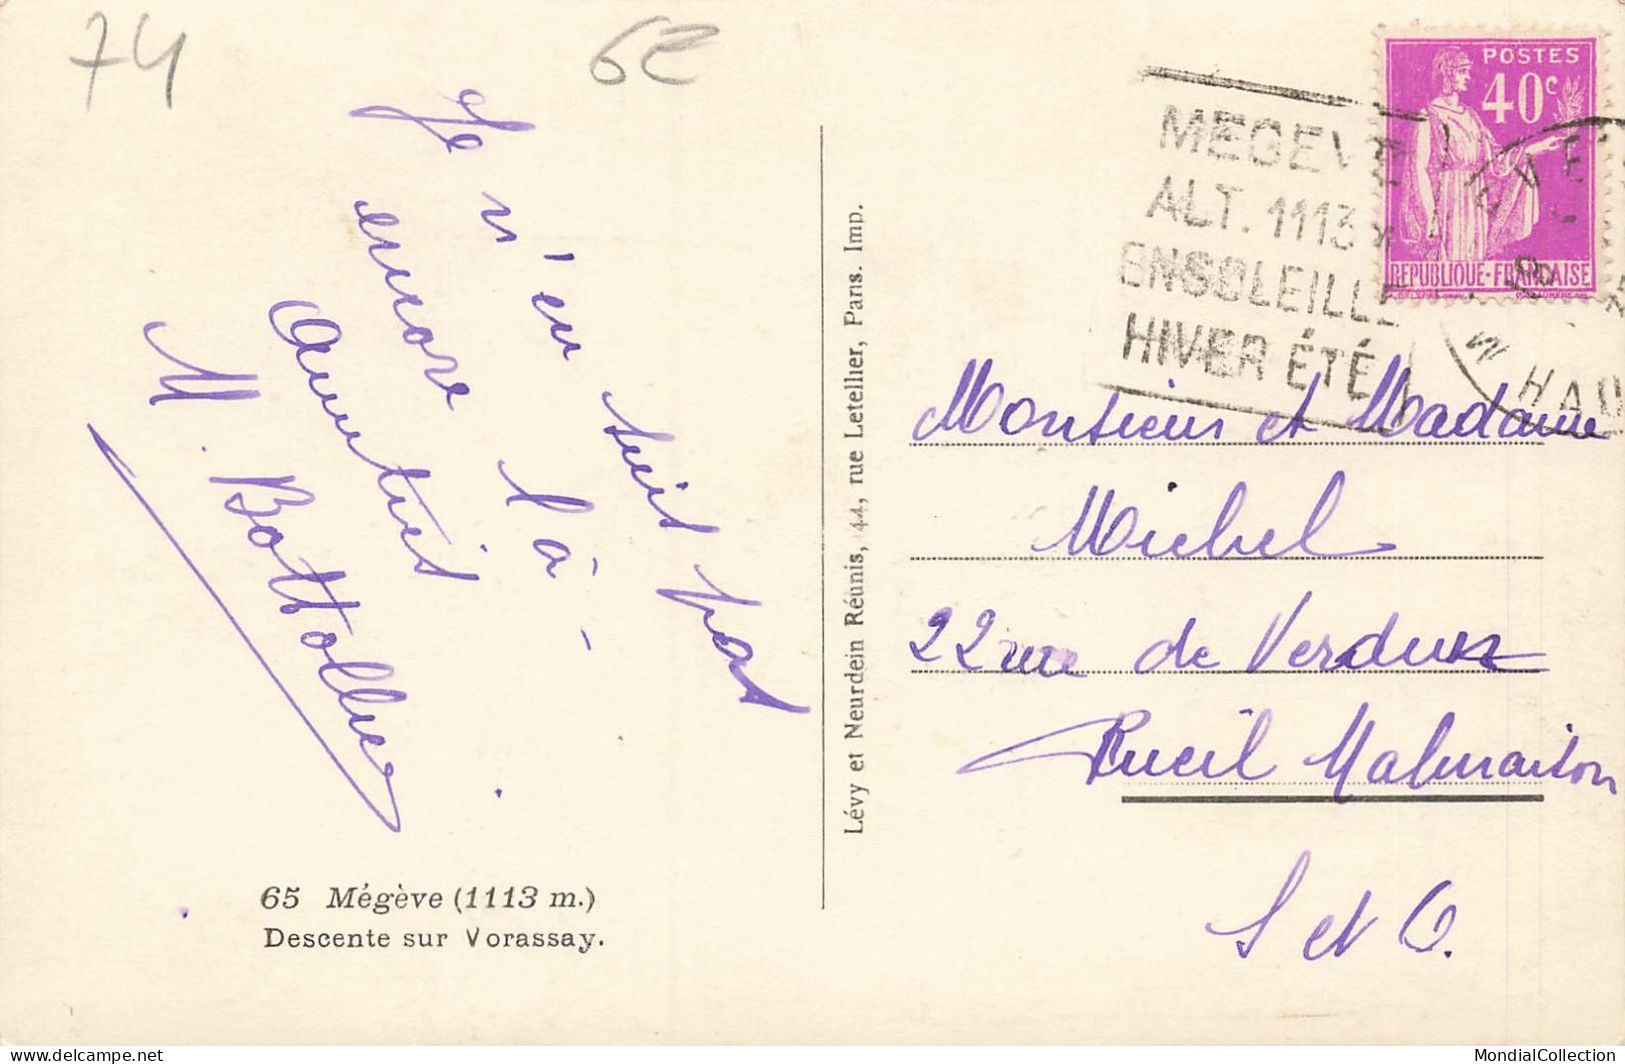 74
62
Je n'en suis pas
encore là -
Amitiés
M. Bottollier
65 Mégève (1113 m.)
Descente sur Vorassay.
Lévy et Neurdein Réunis, 44, rue Letellier, Paris. Imp.
MEGEVE
ALT. 1113
ENSOLEILLE
HIVER ÉTÉ
POSTES
40c
REPUBLIQUE-FRANÇAISE
HAU
Monsieur et Madame
Michel
22 rue de Verdun
Rueil Malmaison
S et O.
MondialCollection
delcampe.net